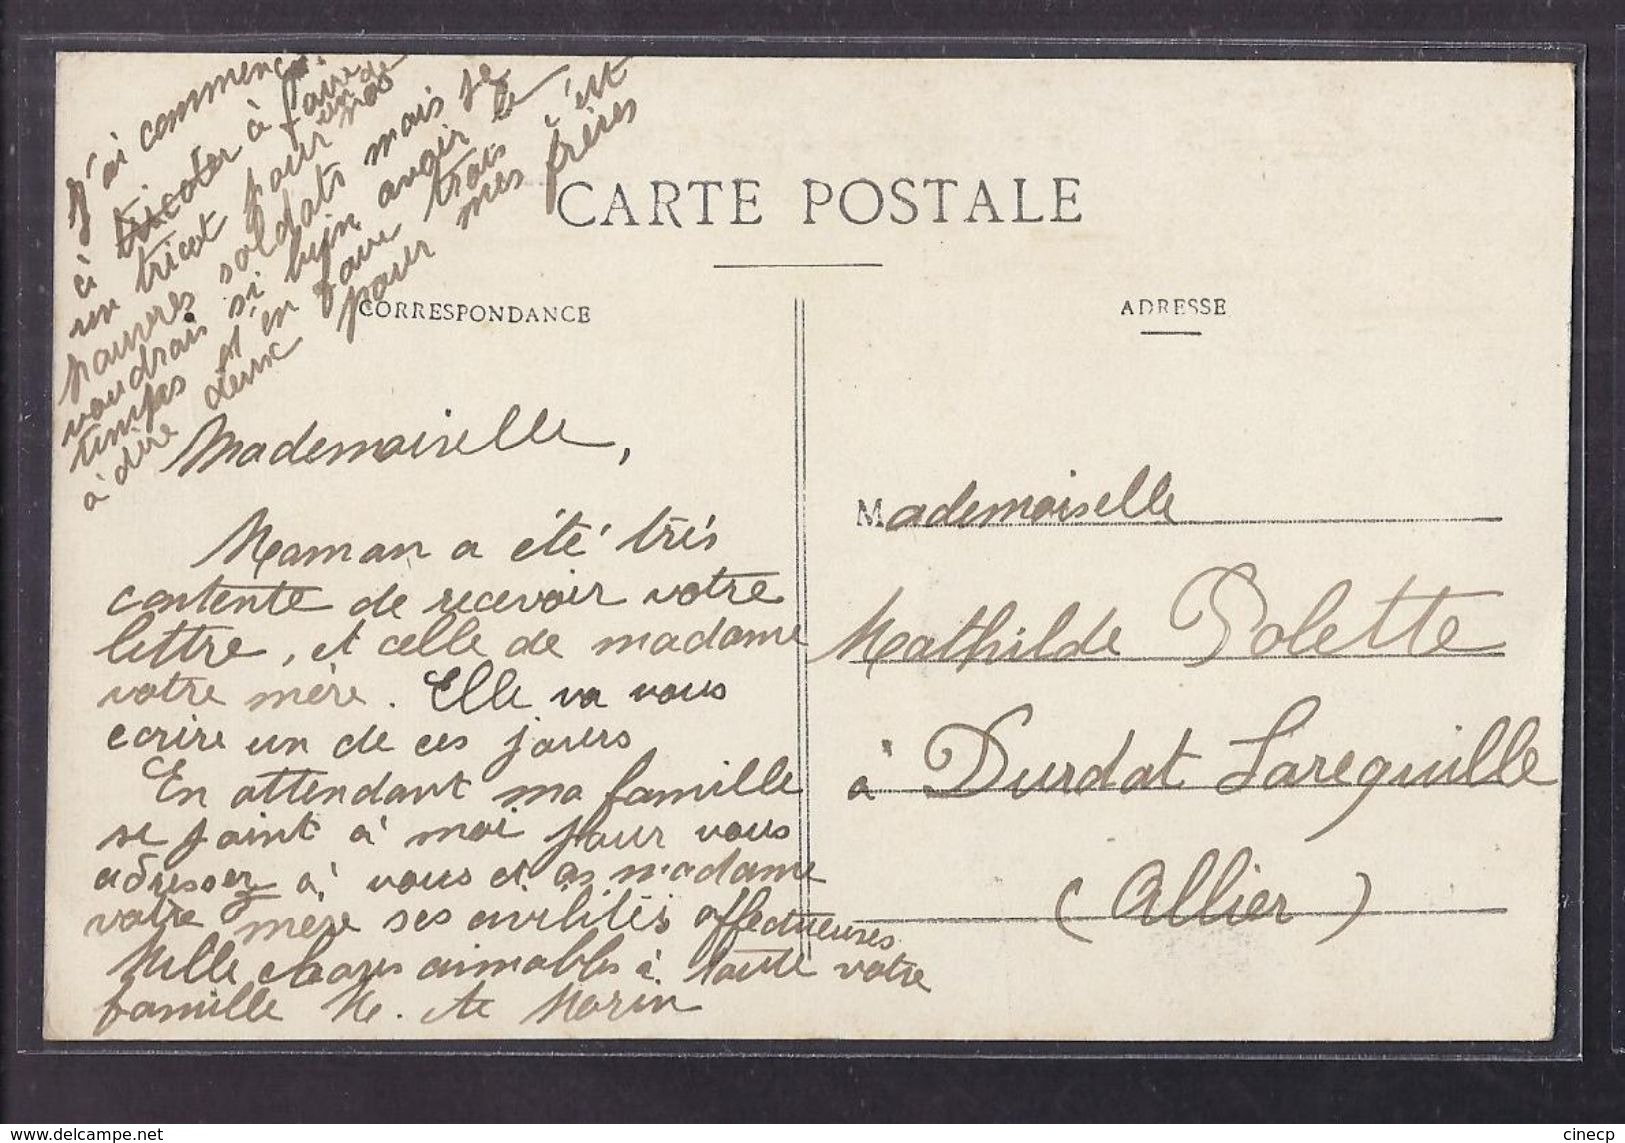 J'ai commencé
à tricoter à faire
un tricot pour un de nos
pauvres soldats mais je
voudrais si bien avoir le
temps et d'en faire trois c'est
à dire deux pour mes frères
CARTE POSTALE
CORRESPONDANCE
ADRESSE
Mademoiselle,
Maman a été très
contente de recevoir votre
lettre, et celle de madame
votre mère. Elle va vous
ecrire un de ces jours
En attendant ma famille
se joint à moi pour vous
adresser à vous et as madame
votre mère ses civilités affectueuses
Mille choses aimables à toute votre
famille M. Morin
Mademoiselle
Mathilde Polette
à Durdat Lareguille
(Allier)
delcampe.net
cinecp